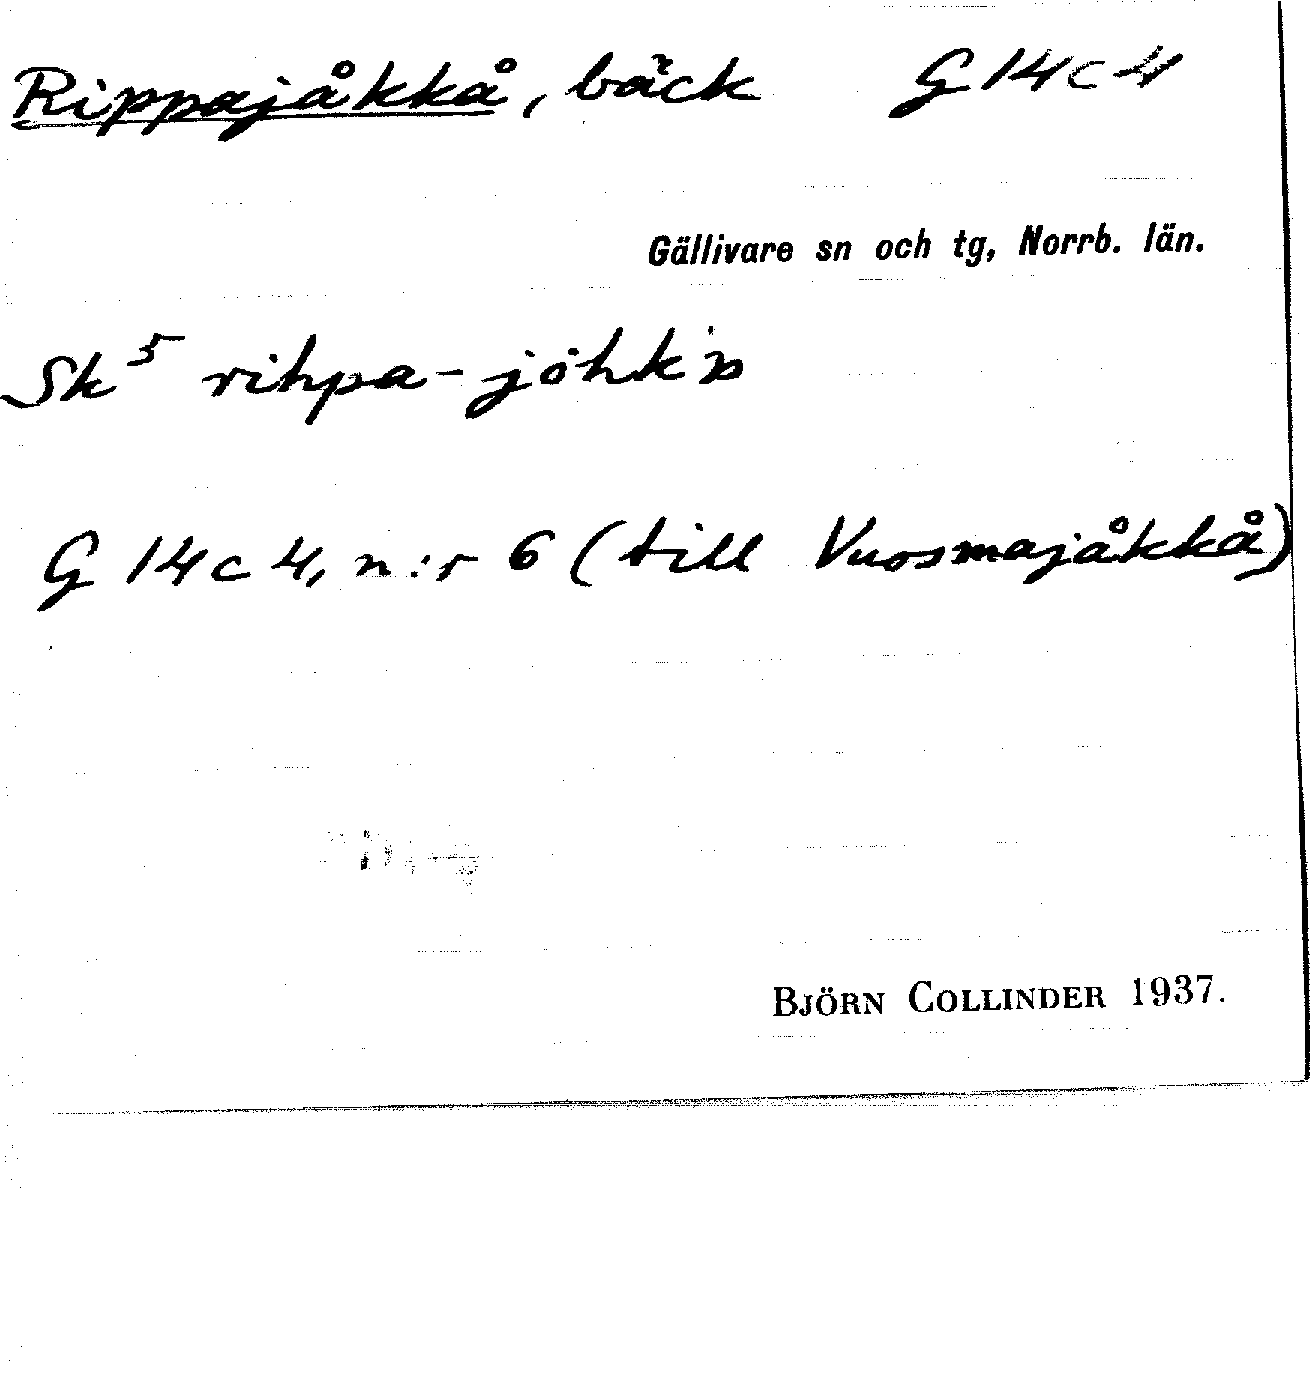 Rippajåkkå, bäck G 14 c 4
Gällivare sn och tg, Norrb. län.
Sk⁵ rihpa-
G 14 c 4, n:r 6 (till Vuosmajåkkå)
BJÖRN COLLINDER 1937.